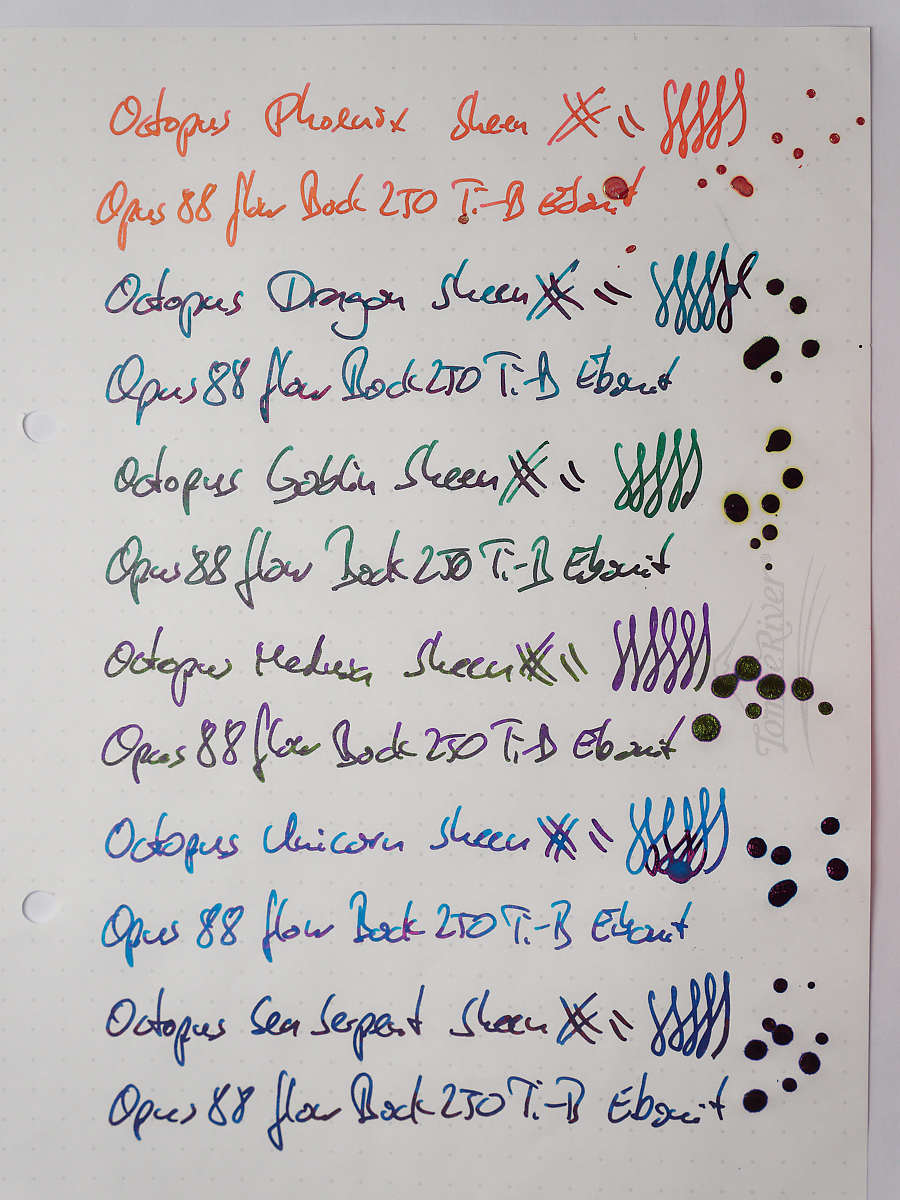 Octopus Phoenix Sheen
Opus 88 flow Bock 250 Ti-B Ebonit
Octopus Dragon Sheen
Opus 88 flow Bock 250 Ti-B Ebonit
Octopus Goblin Sheen
Opus 88 flow Bock 250 Ti-B Ebonit
Octopus Medusa Sheen
Opus 88 flow Bock 250 Ti-B Ebonit
Octopus Unicorn Sheen
Opus 88 flow Bock 250 Ti-B Ebonit
Octopus Sea Serpent Sheen
Opus 88 flow Bock 250 Ti-B Ebonit
TomoeRiver